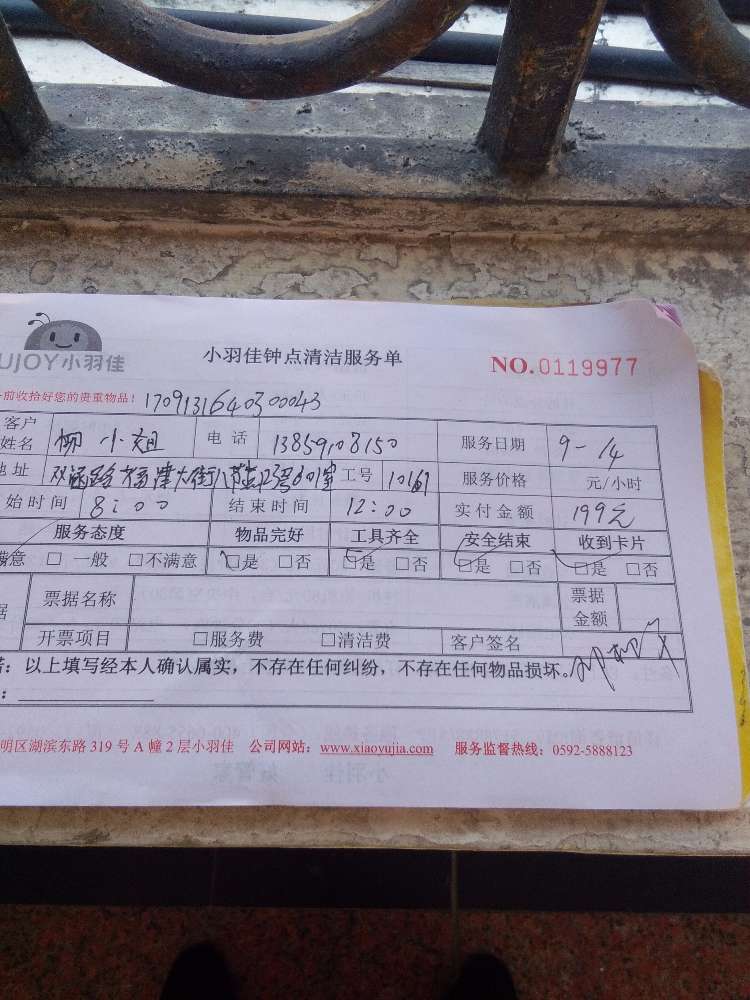 UJOY小羽佳
小羽佳钟点清洁服务单
NO.0119977
前收拾好您的贵重物品！ 170913164030043
客户姓名 柳小姐 电话 13859108150 服务日期 9-14
地址 工号 10161 服务价格 元/小时
始时间 8:00 结束时间 12:00 实付金额 199元
服务态度 物品完好 工具齐全 安全结束 收到卡片
满意 □ 一般 □不满意 □是 □否 □是 □否 □是 □否 □是 □否
据 票据名称 票据金额
开票项目 □服务费 □清洁费 客户签名
：以上填写经本人确认属实，不存在任何纠纷，不存在任何物品损坏。
：
明区湖滨东路 319 号 A 幢 2 层小羽佳 公司网站：www.xiaoyujia.com 服务监督热线：0592-5888123